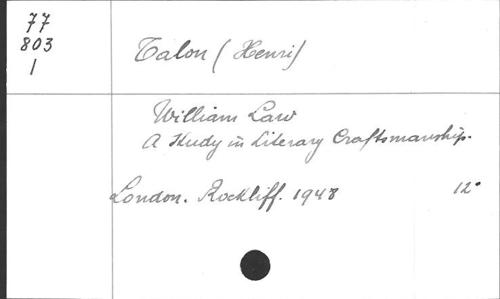 77
803
1
Talon (Henri)
William Law
A Study in Literary Craftsmanship.
London. Rockliff. 1948 12°